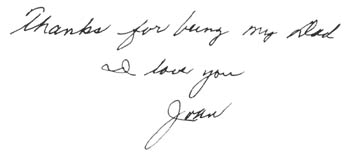 Thanks for being my Dad
I love you
Joan